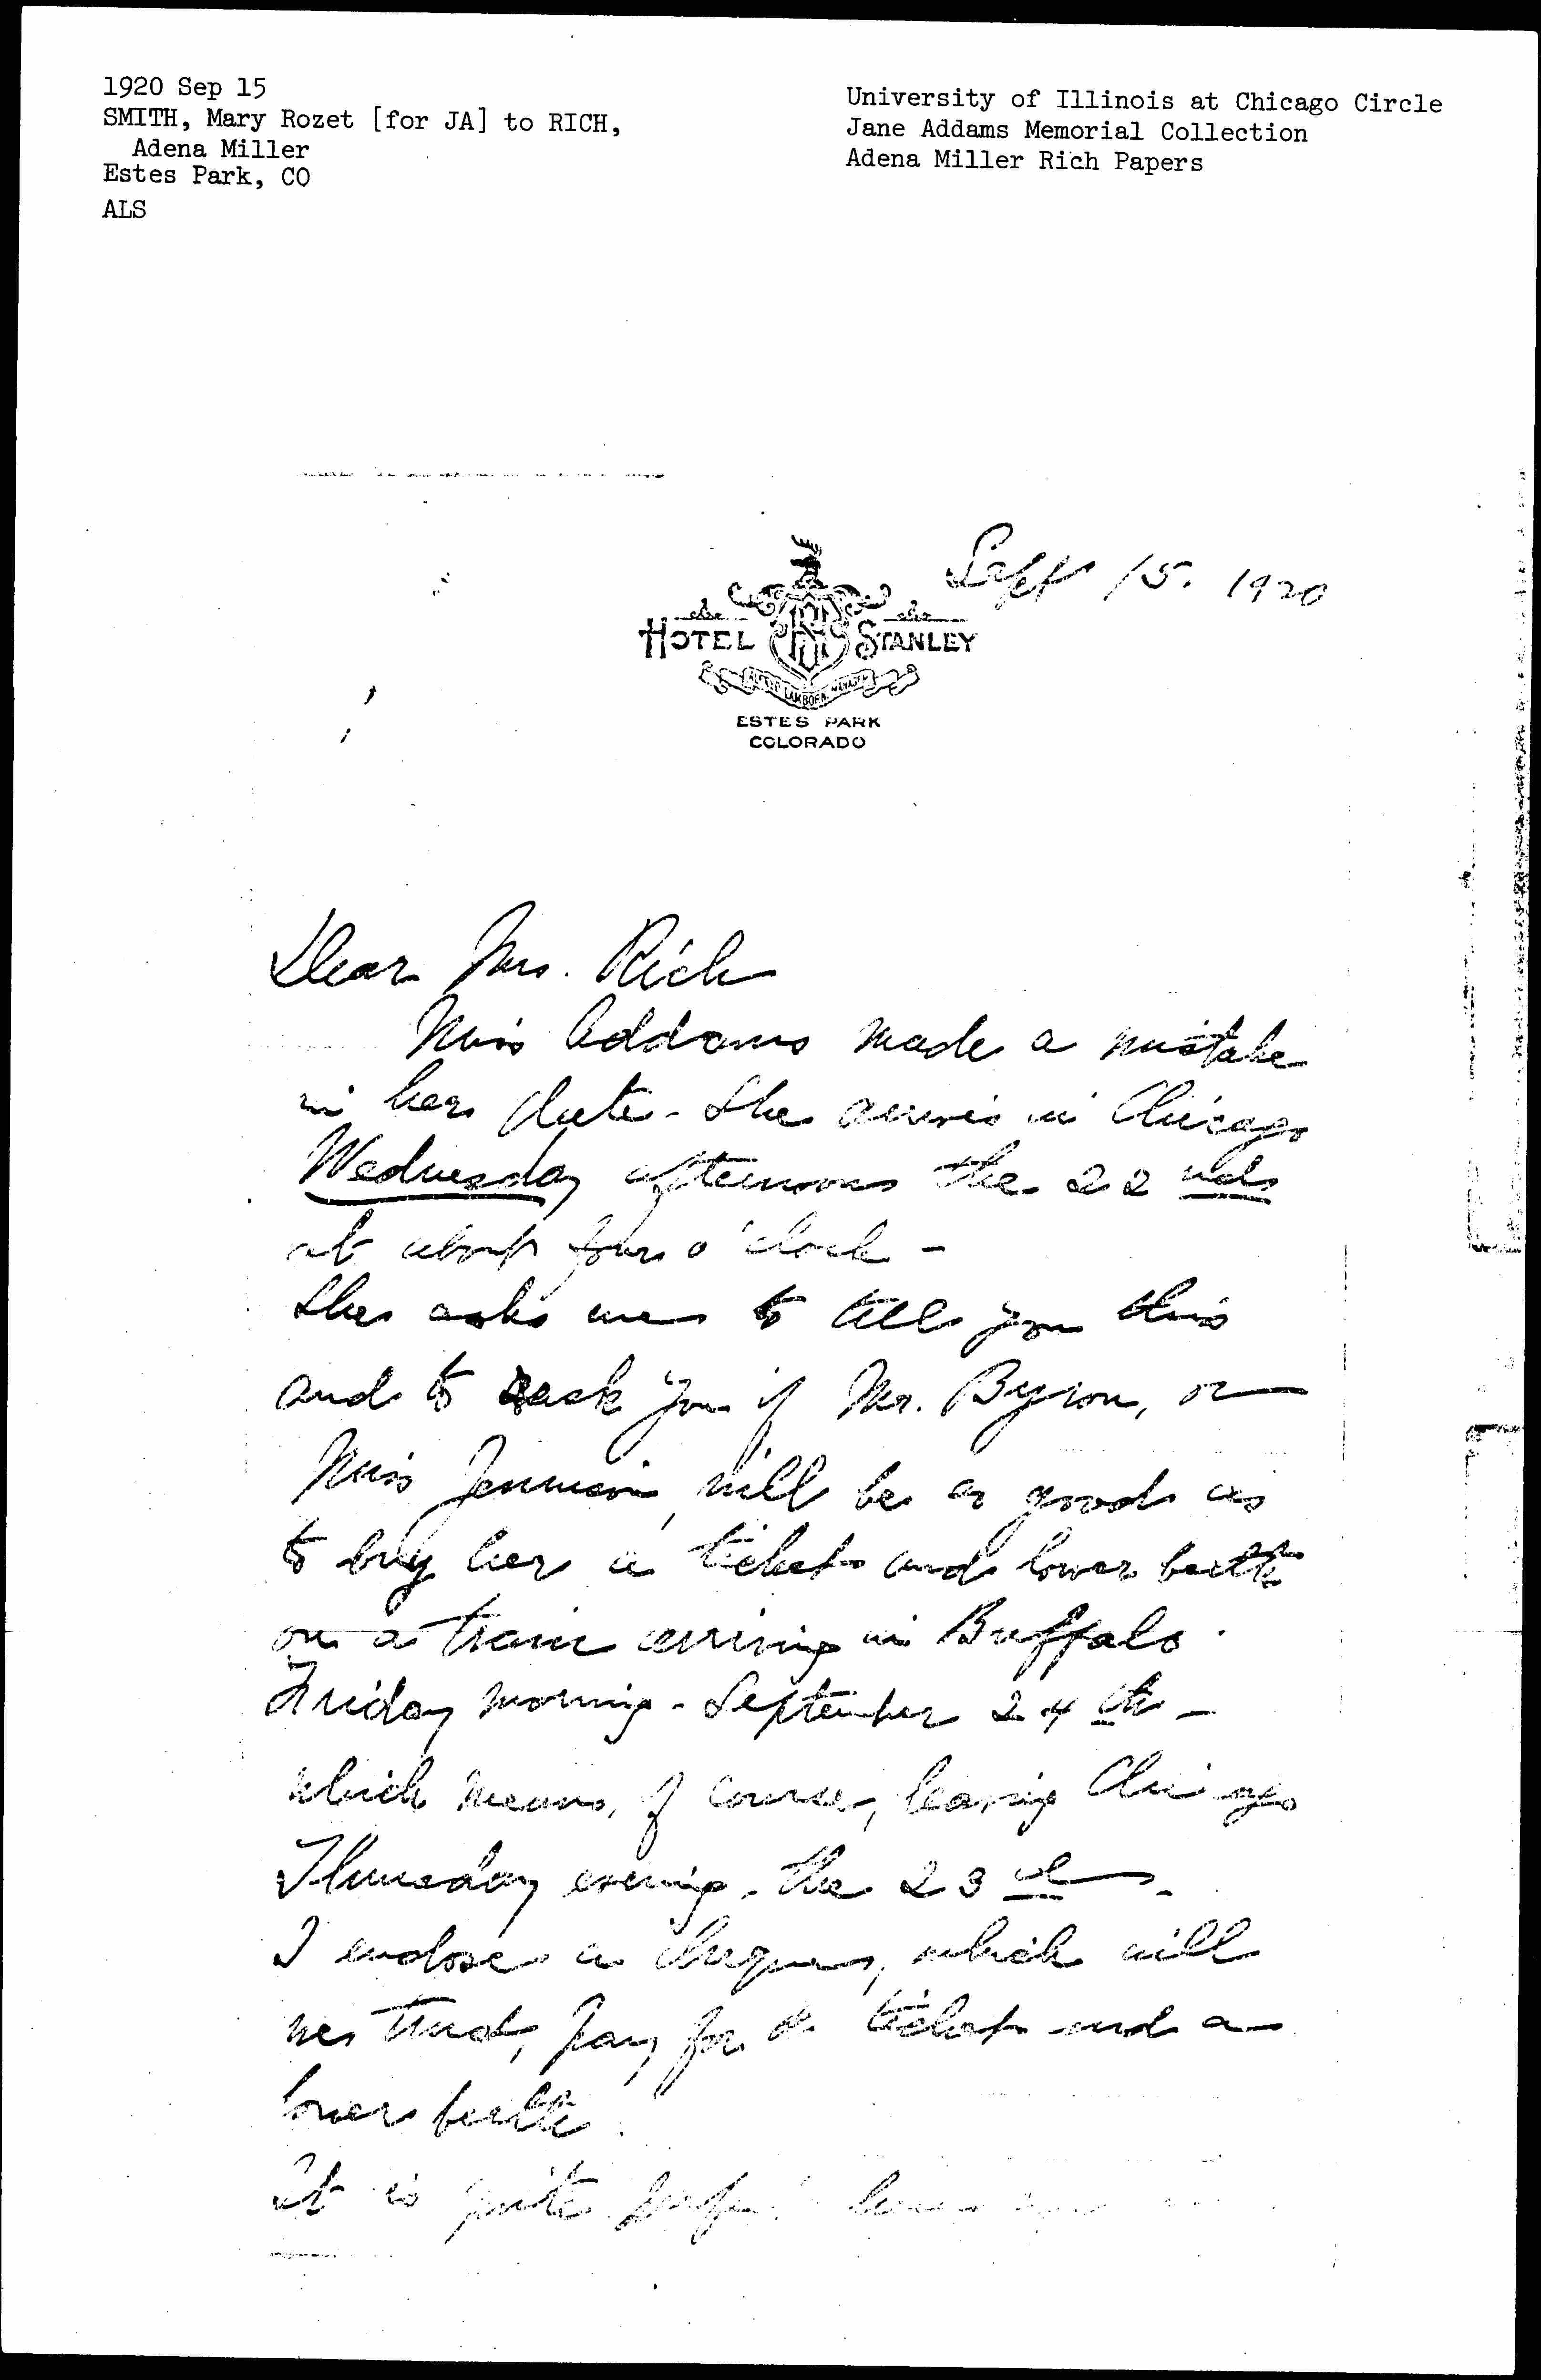 1920 Sep 15
SMITH, Mary Rozet [for JA] to RICH,
Adena Miller
Estes Park, CO
ALS
University of Illinois at Chicago Circle
Jane Addams Memorial Collection
Adena Miller Rich Papers
Sept 15. 1920
The HOTEL The STANLEY
ALFRED LAMBORN, MANAGER
ESTES PARK
COLORADO
Dear Mrs. Rich
Miss Addams made a mistake
in her date - She arrives in Chicago
Wednesday afternoon the 22nd
at about four o'clock -
She asks me to tell you this
and to ask you if Mr. Byron, or
Miss will be as good as
to buy her a ticket and lower berth
on a train arriving in Buffalo
Friday morning - September 24th -
which means, of course, leaving Chicago
Thursday evening - the 23rd -
I enclose a cheque, which will
we trust, pay for a ticket and a
lower berth.
It is quite here